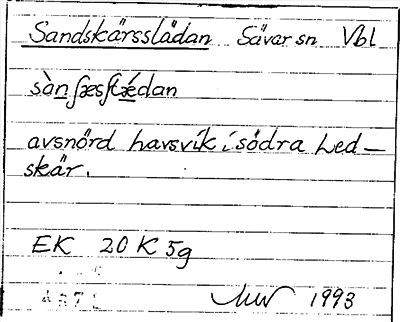 Sandskärsslädan Sävar sn Vbl
sàn ʃæsʃtǽdan
avsnörd havsvik i södra Led–
skär.
EK 20 K 5g
1993